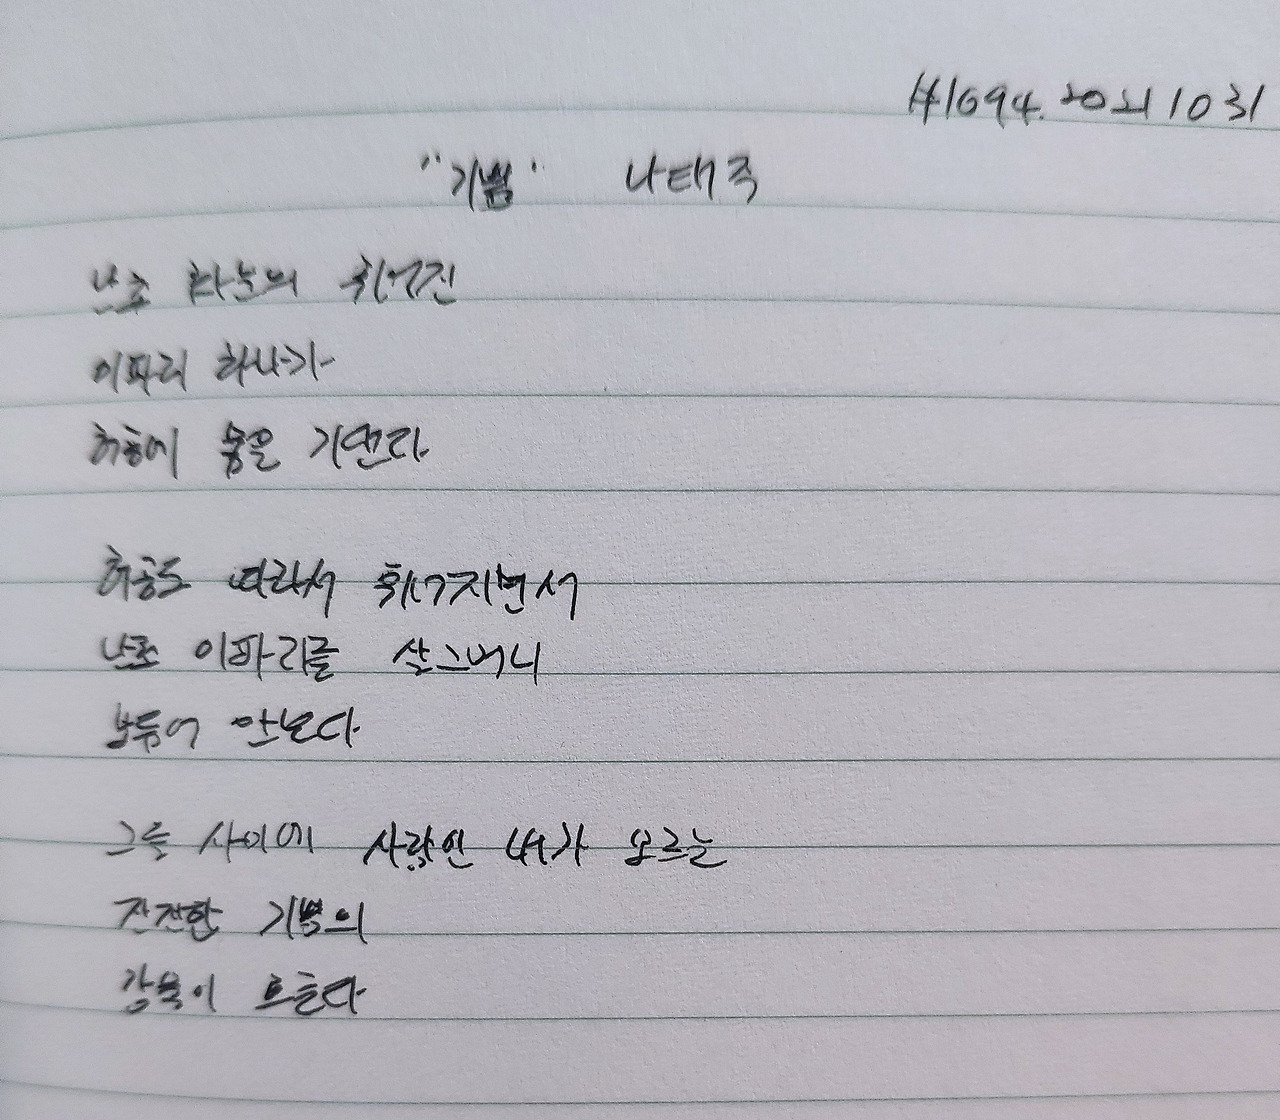 #1694. 20211031
"기쁨" 나태주
난초 화분의 휘어진
이파리 하나가
허공에 몸을 기댄다
허공도 따라서 휘어지면서
난초 이파리를 살그머니
보듬어 안는다
그들 사이에 사람인 내가 모르는
잔잔한 기쁨의
강물이 흐른다